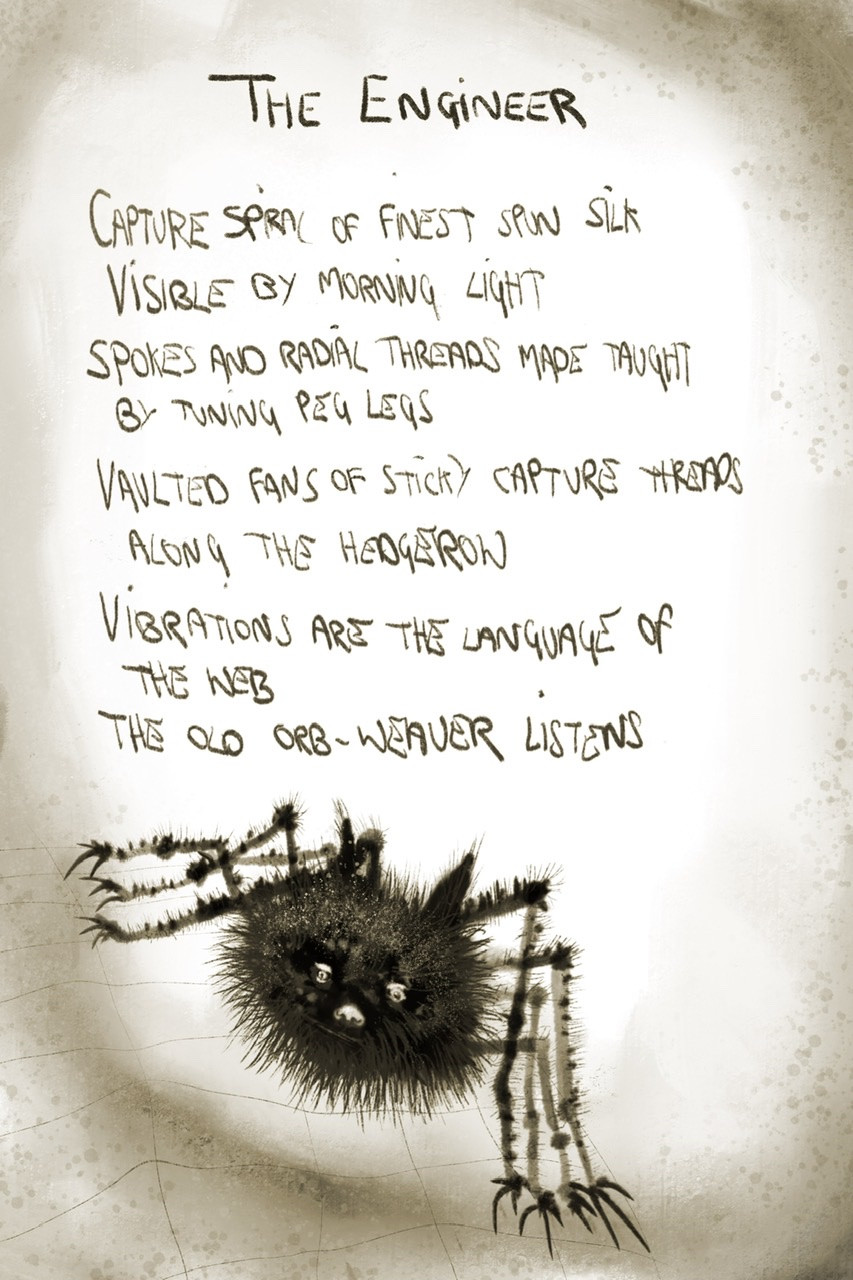 THE ENGINEER
CAPTURE SPIRAL OF FINEST SPUN SILK
VISIBLE BY MORNING LIGHT
SPOKES AND RADIAL THREADS MADE TAUGHT
BY TUNING PEG LEGS
VAULTED FANS OF STICKY CAPTURE THREADS
ALONG THE HEDGEROW
VIBRATIONS ARE THE LANGUAGE OF
THE WEB
THE OLD ORB-WEAVER LISTENS